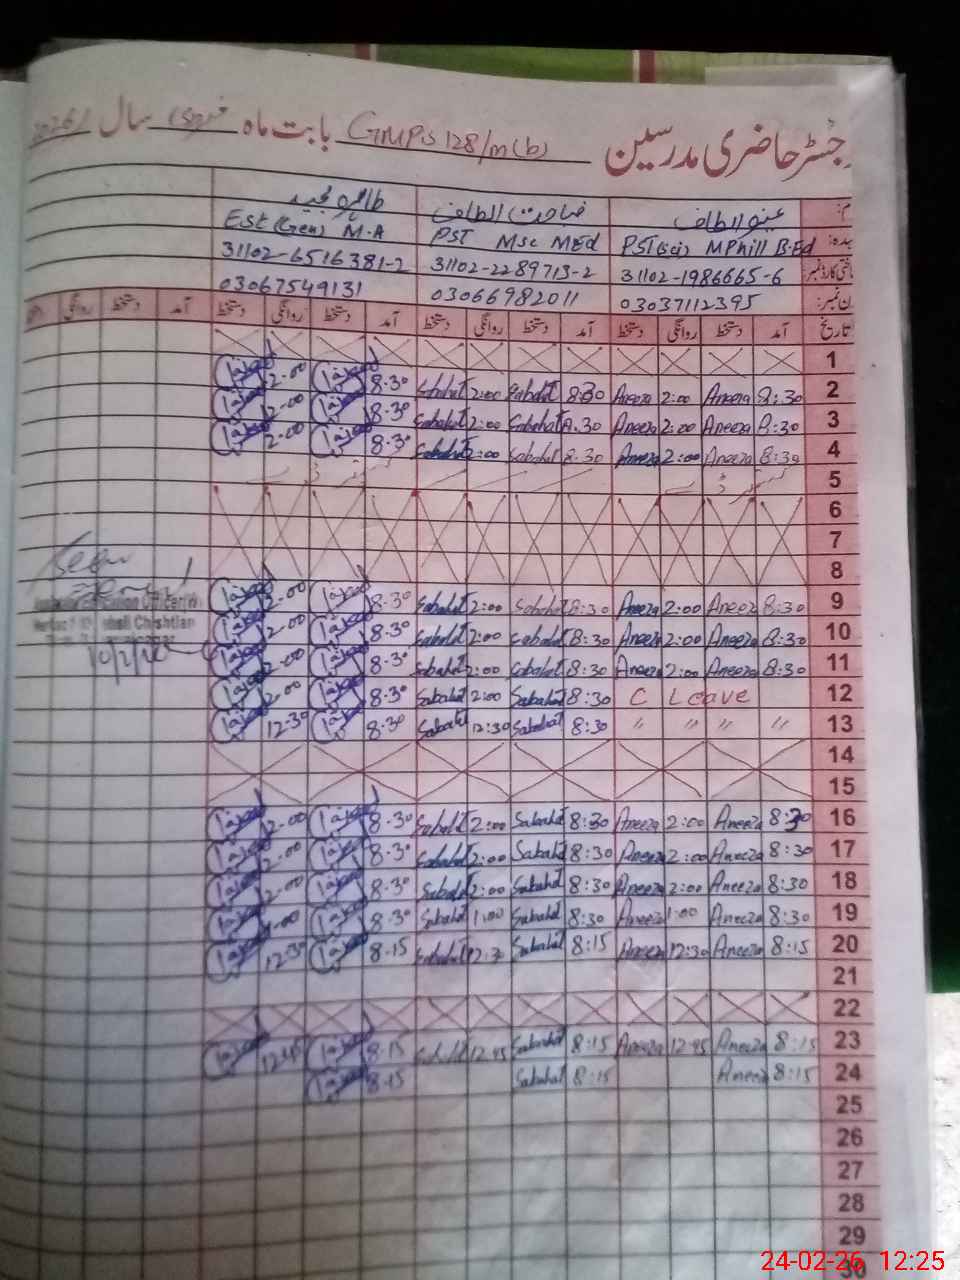 رجسٹر حاضری مدرسین GMPS 128/m(b) بابت ماہ فروری سال 2026
عنیزہ الطاف صباحت الطاف طاہرہ مجید
PST(Sci) MPhill B.Ed PST Msc MEd Est (Gen) M.A
31102-1986665-6 31102-2289713-2 31102-6516381-2
03037112395 03066982011 03067549131
تاریخ آمد دستخط روانگی دستخط آمد دستخط روانگی دستخط آمد دستخط روانگی دستخط آمد دستخط روانگی
1
2.00 8.30 Sabahat 2:00 Sabahat 8:30 Aneeza 2:00 Aneeza 8:30 2
2.00 8.30 Sabahat 2:00 Sabahat 8:30 Aneeza 2:00 Aneeza 8:30 3
2.00 8.30 Sabahat 2:00 Sabahat 8:30 Aneeza 2:00 Aneeza 8:30 4
5
6
7
8
Seen
2.00 8.30 Sabahat 2:00 Sabahat 8:30 Aneeza 2:00 Aneeza 8:30 9
Education Officer(W)
Chishtian
2.00 8.30 Sabahat 2:00 Sabahat 8:30 Aneeza 2:00 Aneeza 8:30 10
10/2/26
2.00 8.30 Sabahat 2:00 Sabahat 8:30 Aneeza 2:00 Aneeza 8:30 11
2.00 8.30 Sabahat 2:00 Sabahat 8:30 C Leave 12
12.30 8.30 Sabahat 12:30 Sabahat 8:30 " " " " 13
14
15
2.00 8.30 Sabahat 2:00 Sabahat 8:30 Aneeza 2:00 Aneeza 8:30 16
2.00 8.30 Sabahat 2:00 Sabahat 8:30 Aneeza 2:00 Aneeza 8:30 17
2.00 8.30 Sabahat 2:00 Sabahat 8:30 Aneeza 2:00 Aneeza 8:30 18
1.00 8.30 Sabahat 1:00 Sabahat 8:30 Aneeza 1:00 Aneeza 8:30 19
12.30 8.15 Sabahat 12:30 Sabahat 8:15 Aneeza 12:30 Aneeza 8:15 20
21
22
12.45 8.15 Sabahat 12:45 Sabahat 8:15 Aneeza 12:45 Aneeza 8:15 23
8.15 Sabahat 8:15 Aneeza 8:15 24
25
26
27
28
29
30
24-02-26 12:25